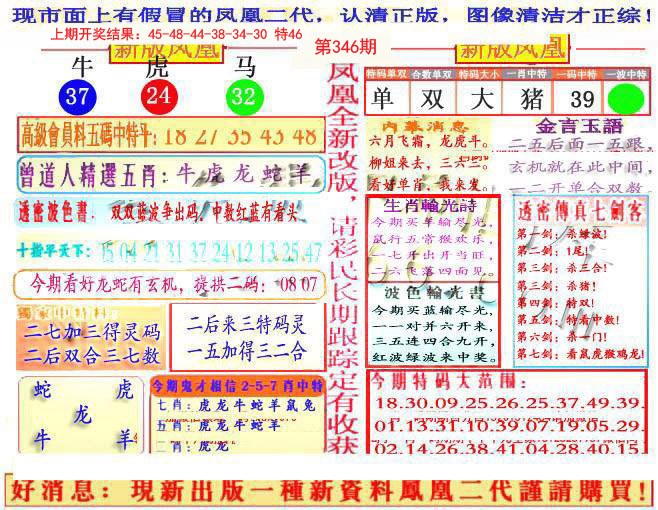 现市面上有假冒的凤凰二代，认清正版，图像清洁才正综！
上期开奖结果：45-48-44-38-34-30 特46
第346期
新版凤凰
新版凤凰
牛 虎 马
37 24 32
高級會員料五碼中特平：18 27 35 43 48
曾道人精選五肖：牛虎龙蛇羊
透密波色書．双双蓝波争出码，中数红蓝有着头
十指平天下：15 04 21 31 37 24 12 13 25 47
今期看好龙蛇有玄机，提拱二码：08 07
獨家中特料
二七加三得灵码
二后双合三七数
二后来三特码灵
一五加得三二合
蛇 虎
龙
牛 羊
今期鬼才相信2-5-7肖中特
七肖：虎龙牛蛇羊鼠兔
五肖：虎龙牛蛇羊
二肖：虎龙
凤凰全新改版，请彩民长期跟踪定有收获
特码单双 合数单双 特码大小 一肖中特 一码中特 一波中特
单 双 大 猪 39
内幕消息
六月飞霜，龙虎斗。
柳姐来去，三六三。
看好单肖，我来发。
金言玉語
二五后面一五跟，
玄机就在此中间，
一二开单合双数
生肖輪光詩
今期买羊输尽光，
鼠行五常猴欢乐，
一七开出开当旺，
二六飞落四面见。
波色輪光書
今期买蓝输尽光，
一一对并六开来，
三五连四合九开，
红波绿波来中奖。
透密傳真七劍客
第一剑：杀绿波！
第二剑：1尾！
第三剑：杀三合！
第三剑：杀猪！
第四剑：特双！
第五剑：特看中数！
第六剑：杀一门！
第七剑：看鼠虎猴鸡龙！
今期特码大范围：
18.30.09.25.26.25.37.49.39.
01.13.31.10.39.07.19.05.29.
02.14.26.38.41.04.28.40.15
好消息：現新出版一種新資料鳳凰二代謹請購買！